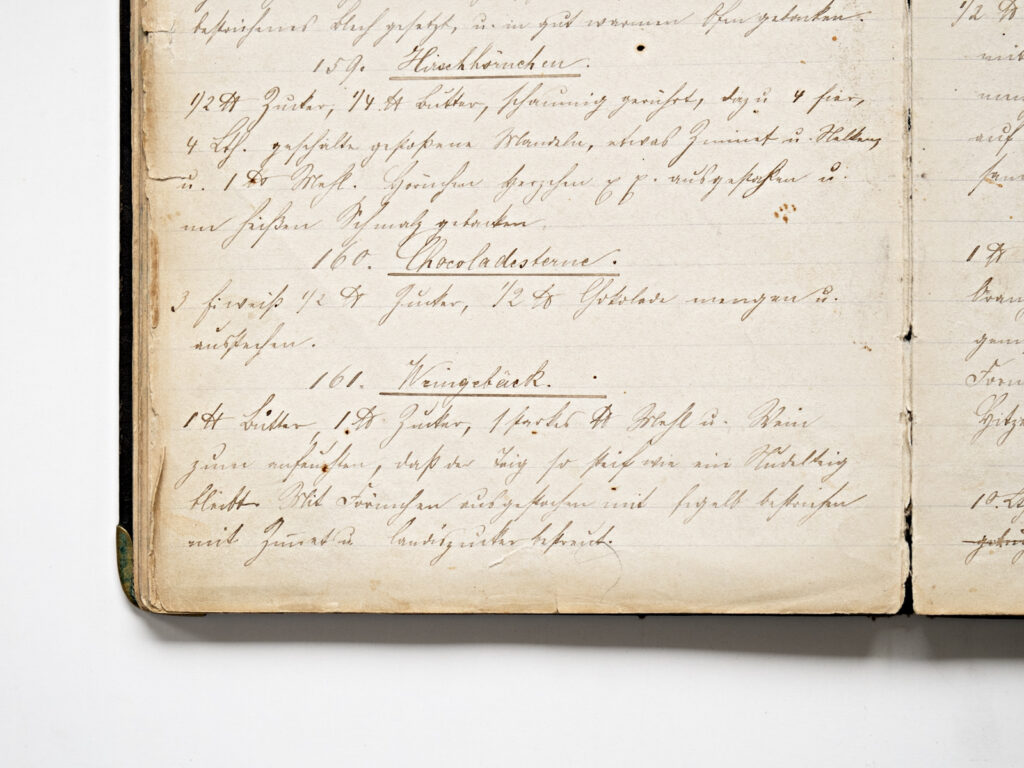 bestrichenes Blech gesetzt, u. in gut warmen Ofen gebacken.
159. Hirschhörnchen.
1/2 ℔ Zucker, 1/4 ℔ Butter, schaumig gerührt, dazu 4 Eier,
4 Lth. geschälte gestoßene Mandeln, etwas Zimmet u. Nelken
u. 1 ℔ Mehl. Hörnchen Herzchen p p. ausgestochen u.
im heißen Schmalz gebacken.
160. Chocoladesterne.
3 Eiweiß 1/2 ℔ Zucker, 1/2 ℔ Chokolade mengen u.
ausstechen.
161. Weingebäck.
1 ℔ Butter, 1 ℔ Zucker, 1 starkes ℔ Mehl u. Wein
zum anfeuchten, daß der Teig so steif wie ein Nudelteig
bleibt. Mit Förmchen ausgestochen mit Eigelb bestrichen
mit Zimet u Candiszucker bestreut.
1/2 ℔
mit
auf
1 ℔
Hitze
10. Lth